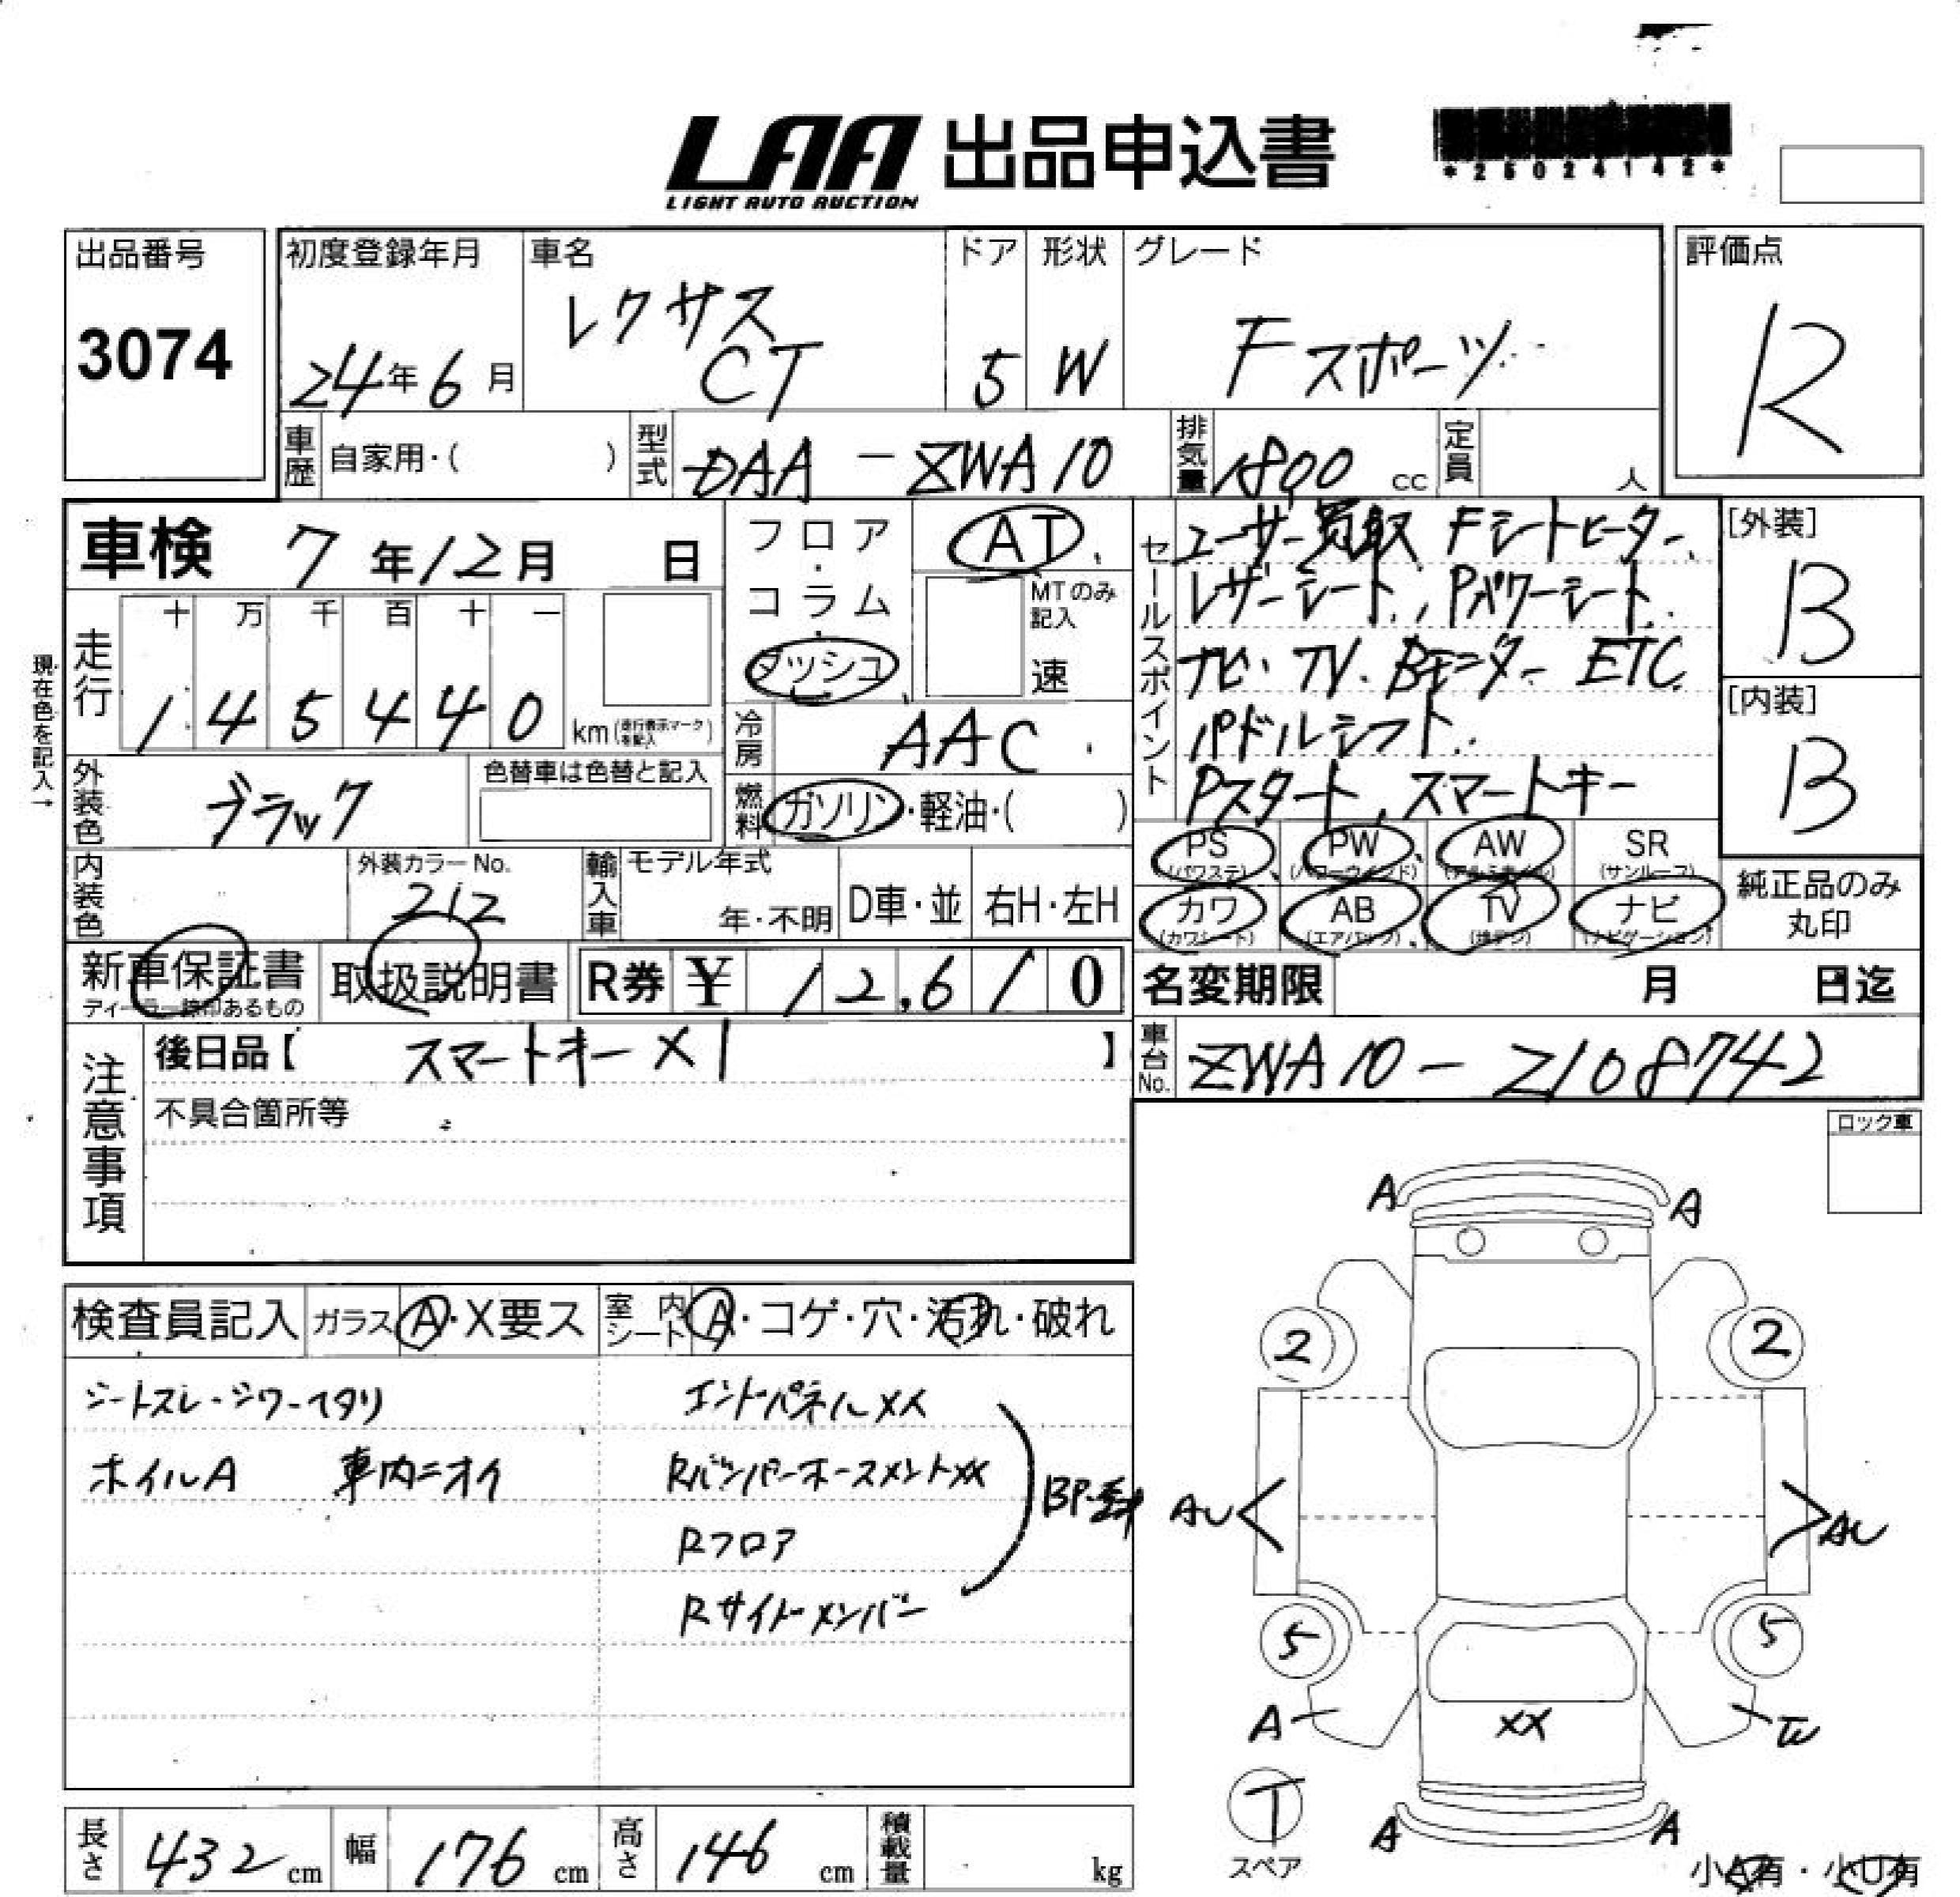 LAA 出品申込書
LIGHT AUTO AUCTION
*25024142*
出品番号
3074
初度登録年月
24年6月
車名
レクサス
CT
ドア
5
形状
W
グレード
Fスポーツ
評価点
R
車歴 自家用・( )
型式 DAA-ZWA10
排気量 1800 cc
定員 人
車検 7年12月 日
フロア・コラム・ダッシュ
AT
MTのみ記入
速
現在色を記入→
走行
十 万 千 百 十 一
1 4 5 4 4 0 km
冷房 AAC
燃料 ガソリン・軽油・( )
外装色 ブラック
色替車は色替と記入
内装色
外装カラーNo.
212
輸入車
モデル年式
年・不明
D車・並
右H・左H
セールスポイント
ユーザー買取 Fシートヒーター
レザーシート、Pパワーシート
ナビ・TV・Bモニター ETC
パドルシフト
Pスタート、スマートキー
[外装]
B
[内装]
B
PS (パワステ)
PW (パワーウインド)
AW (アルミホイル)
SR (サンルーフ)
カワ (カワシート)
AB (エアバック)
TV (地デジ)
ナビ (ナビゲーション)
純正品のみ丸印
新車保証書
ディーラー捺印あるもの
取扱説明書
R券 ¥ 12,610
名変期限 月 日迄
車台No. ZWA10-2108742
注意事項
後日品【 スマートキー×1 】
不具合箇所等
ロック車
検査員記入
ガラス A・X要ス
室内シート A・コゲ・穴・汚れ・破れ
シートスレ・シワ・ヘタリ
ホイルA 車内ニオイ
エンドパネルXX
RバンパーホースメントXX
Rフロア
Rサイドメンバー
A A
2 2
AU AU
5 5
A XX W
T
スペア
A A
小A有・小U有
長さ 432 cm
幅 176 cm
高さ 146 cm
積載量 kg